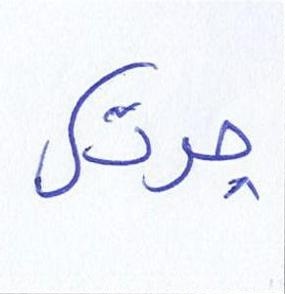 چرتک